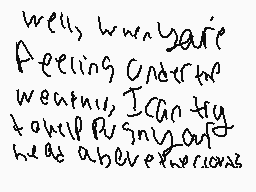 well, when you're
feeling under the
weather, I can try
to help pu show your
head above the clouds